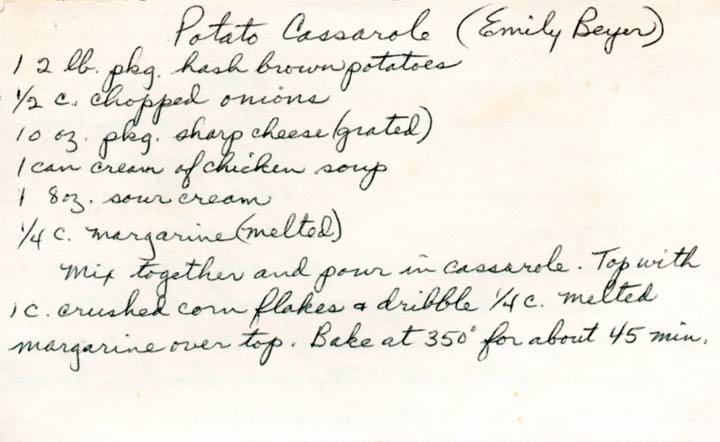 Potato Cassarole (Emily Beyer)
1 2 lb. pkg. hash brown potatoes
1/2 c. chopped onions
10 oz. pkg. sharp cheese (grated)
1 can cream of chicken soup
1 8oz. sour cream
1/4 c. margarine (melted)
Mix together and pour in cassarole. Top with
1 c. crushed corn flakes & dribble 1/4 c. melted
margarine over top. Bake at 350° for about 45 min.